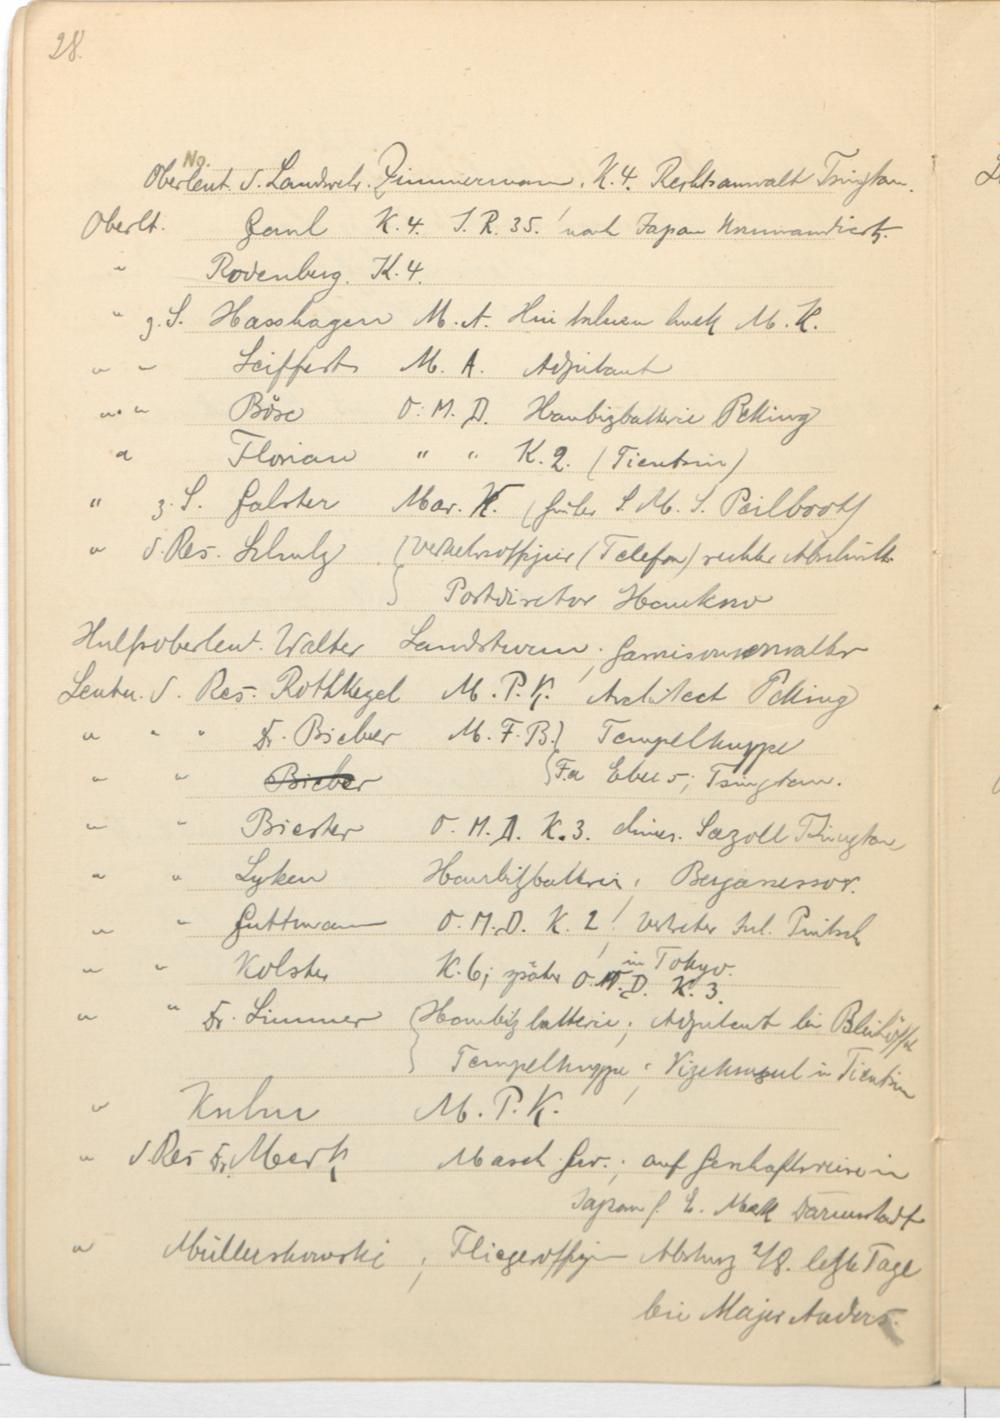 28.
No.
Oberleut. d. Landwehr. Zimmermann, K.4. Rechtsanwalt Tsingtau.
Oberlt. Gaul K.4. I.R. 35. ! nach Japan kommandiert.
" Rodenberg. K.4.
" z.S. Hasshagen M.A. Hui tschuen huck M.K.
" " Seiffert M.A. Adjutant
" " Böse O.M.D. Haubitzbatterie Peking
" Florian " " K.2. (Tientsin)
" z.S. Galster Mar. K. (früher S.M.S.
" d.Res. Schulz (Verkehrsoffizier (Telefon) rechter Abschnitt
Postdirektor Hankow
Hulfsoberleut. Walter Landsturm; Garnisonverwalter
Leutn. d. Res. Rothkegel M.P.K. Architect Peking
" " " Dr. Bieber M.F.B. } Tempelkuppe
" " Bieber {Fa Ebers; Tsingtau.
" " Biester O.M.D. K.3. chines. Seezoll Tsingtau
" " Lyken Haubitzbatterie; Bergassessor.
" " Guttmann O.M.D. K.2! Vertreter Jul. Pintsch
in Tokyo.
" " Kolster K.6; später O.M.D. K.3.
" " Dr. Simmer (Haubitzbatterie; Adjutant bei
Tempelkuppe; Vizekonsul in Tientsin
" Kuhn M.P.K.
" d.Res Dr. Merk Masch. Gew.; auf Geschäftsreise in
Japan f. E. Merk Darmstadt
" Müllerskowski; Fliegeroffizier Absturz 2/8. letzte Tage
bei Major Anders.